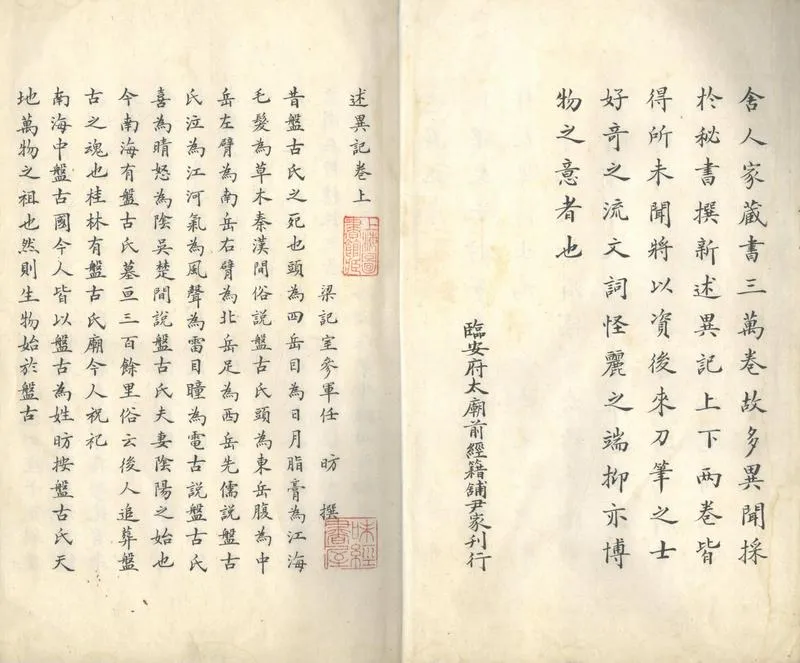 舍人家藏書三萬卷故多異聞採
於秘書撰新述異記上下兩卷皆
得所未聞將以資後來刀筆之士
好奇之流文詞怪麗之端抑亦博
物之意者也
臨安府太廟前經籍舖尹家刊行
述異記卷上
上海圖書館藏
梁記室參軍任 昉 撰
味經書屋
昔盤古氏之死也頭為四岳目為日月脂膏為江海
毛髮為草木秦漢間俗說盤古氏頭為東岳腹為中
岳左臂為南岳右臂為北岳足為西岳先儒說盤古
氏泣為江河氣為風聲為雷目瞳為電古說盤古氏
喜為晴怒為陰吳楚間說盤古氏夫妻陰陽之始也
今南海有盤古氏墓亘三百餘里俗云後人追葬盤
古之魂也桂林有盤古氏廟今人祝祀
南海中盤古國今人皆以盤古為姓昉按盤古氏天
地萬物之祖也然則生物始於盤古